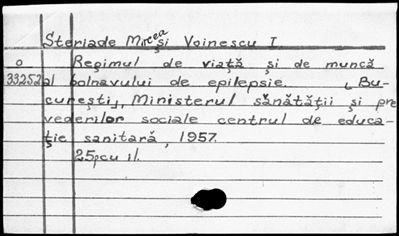 Steriade Mircea și Voinescu I.
o Regimul de viață și de muncă
33252 al bolnavului de epilepsie. [Bu-
curești], Ministerul sănătății și pre
vederilor sociale centrul de educa-
ție sanitară, 1957.
25p cu il.